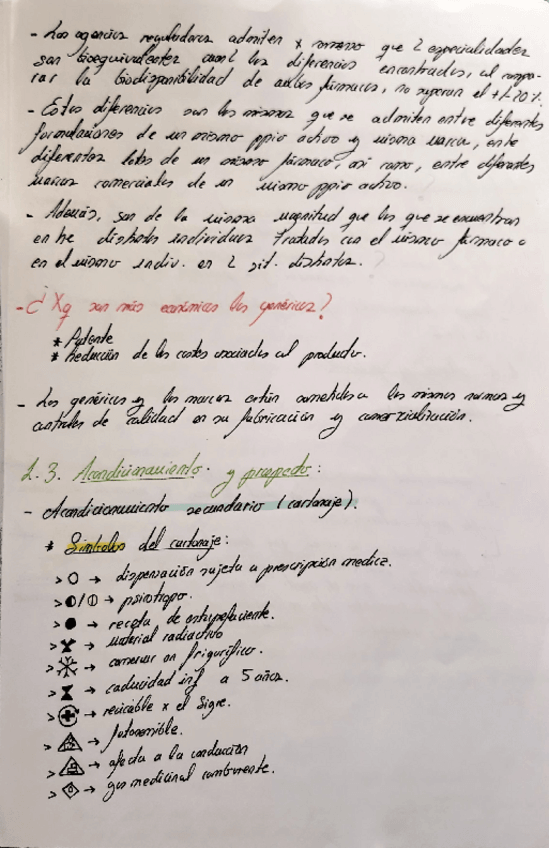 - Las agencias reguladoras admiten x consenso que 2 especialidades
son bioequivalentes cuando las diferencias encontradas, al compa-
rar la biodisponibilidad de ambos fármacos, no superan el +/-20%.
- Estas diferencias son las mismas que se admiten entre diferentes
formulaciones de un mismo ppio activo y misma marca, entre
diferentes lotes de un mismo fármaco, así como, entre diferentes
marcas comerciales de un mismo ppio activo.
- Además, son de la misma magnitud que las que se encuentran
entre distintos individuos tratados con el mismo fármaco o
en el mismo indiv. en 2 sit. distintas.
- ¿Xq son más económicos los genéricos?
* Patente
* Reducción de los costes asociados al producto.
- Los genéricos y las marcas están sometidos a las mismas normas y
controles de calidad en su fabricación y comercialización.
2.3. Acondicionamiento y prospecto:
- Acondicionamiento secundario (cartonaje).
* Símbolos del cartonaje:
> ○ → dispensación sujeta a prescripción medica.
> ◐/⦶ → psicótropo.
> ● → receta de estupefaciente.
> → material radiactivo
> → conservar en frigorífico.
> → caducidad inf a 5 años.
> → reciclable x el Sigre.
> → fotosensible.
> → afecta a la conducción
> → gas medicinal comburente.